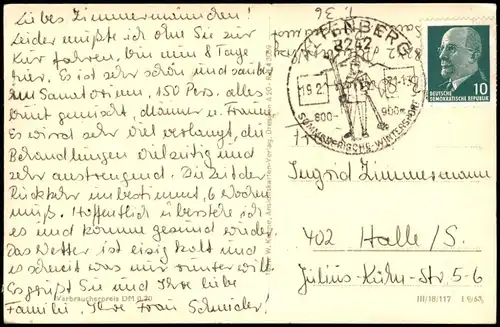 Liebes Zimmermännchen!
Leider mußte ich ohne Sie zur
Kur fahren. Bin nun 8 Tage
hier. Es ist sehr schön und sauber
im Sanatorium, 150 Pers. alles
bunt gemischt, Männer u. Frauen
Es wird sehr viel verlangt, die
Behandlungen vielzeitig und
sehr anstrengend. Die Zeit der
Rückkehr unbestimmt, 6 Wochen
muß. Hoffentlich überstehe ich
es und komme gesund wieder.
Das Wetter ist eisig kalt und
es schneit was nur runter will.
Es grüßt Sie und Ihre liebe
Familie, Ihre Frau Schneider!
Verbraucherpreis DM 0,20
ALTENBERG
8242
19.2.
800-
900m
WINTERSPORT
10
DEUTSCHE
DEMOKRATISCHE REPUBLIK
Ingrid Zimmermann
402 Halle/S.
Julius-Kühn-Str. 5-6
III/18/117